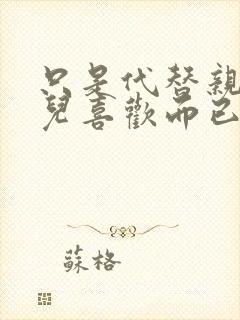 只是代替親
兒喜歡而已
蘇格